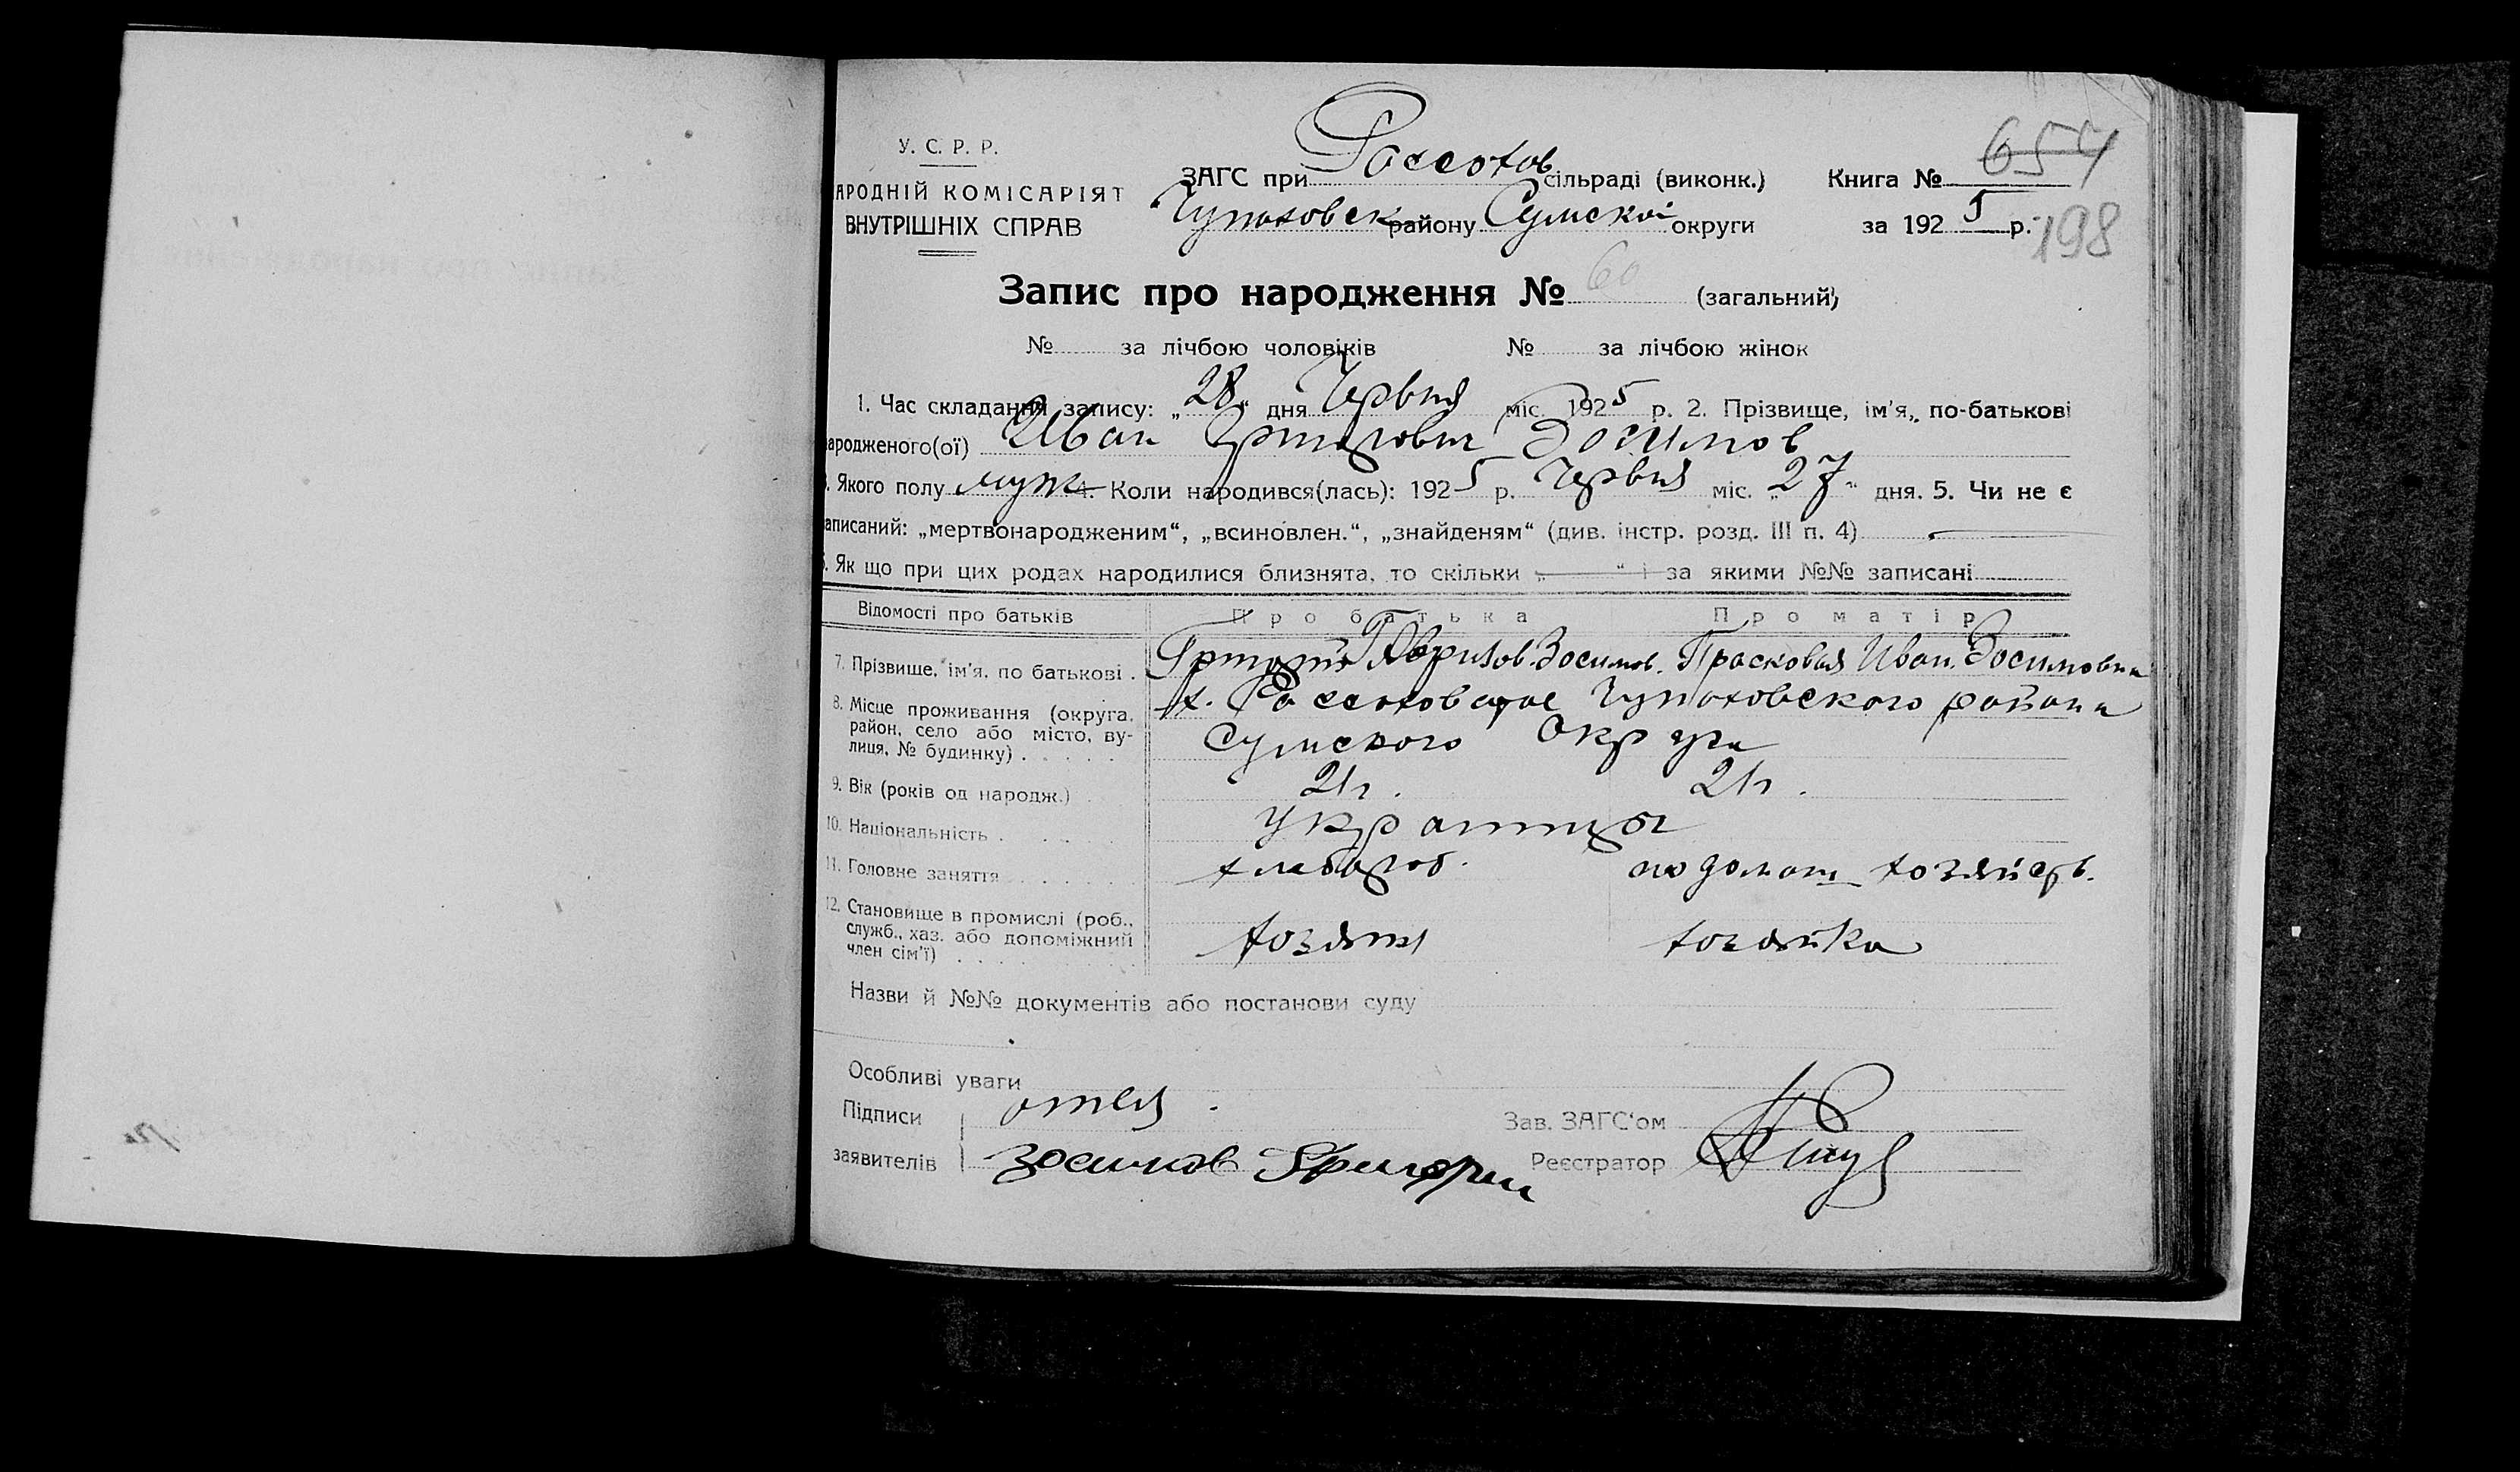 У. С. Р. Р.
АРОДНІЙ КОМІСАРІЯТ
ВНУТРІШНІХ СПРАВ
ЗАГС при Россохов сільраді (виконк.) Книга № 654
Чупаховск району Сумской округи за 1925 р. 198
Запис про народження № 60 (загальний)
№ за лічбою чоловіків № за лічбою жінок
1. Час складання запису: „28“ дня Червня міс. 1925 р. 2. Прізвище, ім'я, по-батькові
ародженого(ої) Иван Григорович Зосимов
3. Якого полу муж 4. Коли народився(лась): 1925 р. Червня міс. „27“ дня. 5. Чи не є
аписаний: „мертвонародженим“, „всиновлен.“, „знайденям“ (див. інстр. розд. III п. 4)
6. Як що при цих родах народилися близнята, то скільки „—“ і за якими №№ записані
Відомості про батьків Про батька Про матір
7. Прізвище, ім'я, по батькові . Григорій Зосимов. Прасковья Иван. Зосимовна
8. Місце проживання (округа, район, село або місто, вулиця, № будинку) . . . . . х. Чупаховского района
Сумского Округи
9. Вік (років од народж.) 21г. 21г.
10. Національність . . . .
11. Головне заняття . . . . . хлебороб. по домаш хозяйств.
12. Становище в промислі (роб., служб., хаз. або допоміжний член сім'ї) . . . . хозяин хозяйка
Назви й №№ документів або постанови суду
Особливі уваги
Підписи отец. Зав. ЗАГС'ом
заявителів Зосимов Григорий Реєстратор